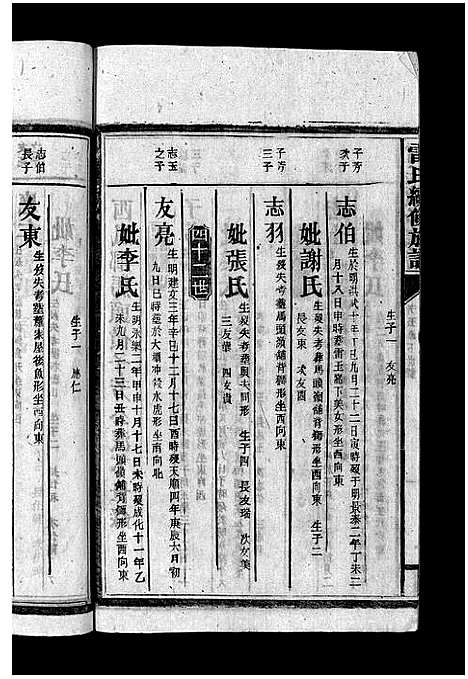 雷氏續修族譜
生子一 友亮
千芳次子
志伯 生於明洪武十年丁巳九月二十二日寅時歿于明景泰二年丁未二
月十八日申時葬雷王嘉下美女形坐西向東
妣謝氏 生歿失考葬馬頭嶺舖背獅形坐西向東 生子二
長友東 次友圓
千芳三子
志羽 生歿失考葬馬頭嶺舖背獅形坐西向東
妣張氏 生歿失考葬與夫同形 生子四 長友瑞 次友美
三友華 四友貴
四十二世
志玉之子
友亮 生明建文三年辛巳十二月十七日酉時歿天順四年庚辰六月初
九日巳時葬於大嶺沖水虎形坐南向北
妣李氏 生明永樂二年甲申十月十七日未時歿成化十一年乙
未九月二十三日丑時葬馬頭嶺舖背獅形坐酉向東
生子一 應仁
志伯長子
友東 生歿失考葬羅家屋後魚形坐西向東